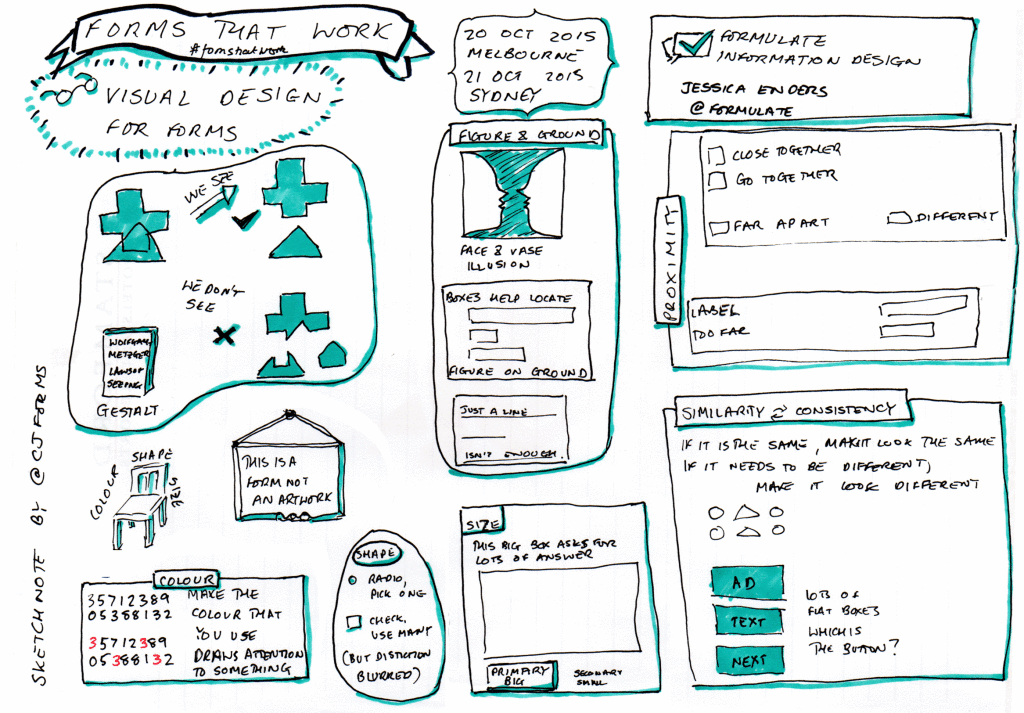 FORMS THAT WORK
#formsthatwork
VISUAL DESIGN
FOR FORMS
20 OCT 2015
MELBOURNE
21 OCT 2015
SYDNEY
FORMULATE
INFORMATION DESIGN
JESSICA ENDERS
@FORMULATE
WE SEE
WE DON'T
SEE
WOLFGANG
METZGER
LAWS OF
SEEING
GESTALT
FIGURE & GROUND
FACE & VASE
ILLUSION
BOXES HELP LOCATE
FIGURE ON GROUND
JUST A LINE
ISN'T ENOUGH.
PROXIMITY
CLOSE TOGETHER
GO TOGETHER
FAR APART
DIFFERENT
LABEL
TOO FAR
SIMILARITY ⇄ CONSISTENCY
IF IT IS THE SAME, MAKE IT LOOK THE SAME
IF IT NEEDS TO BE DIFFERENT,
MAKE IT LOOK DIFFERENT
AD
TEXT
NEXT
LOTS OF
FLAT BOXES
WHICH IS
THE BUTTON?
SKETCHNOTE BY @CJFORMS
SHAPE
COLOUR
SIZE
THIS IS A
FORM NOT
AN ARTWORK
COLOUR
35712389
05388132
35712389
05388132
MAKE THE
COLOUR THAT
YOU USE
DRAWS ATTENTION
TO SOMETHING
SHAPE
RADIO,
PICK ONE
CHECK,
USE MANY
(BUT DISTICTION
BLURRED)
SIZE
THIS BIG BOX ASKS FOR
LOTS OF ANSWER
PRIMARY
BIG
SECONDARY
SMALL